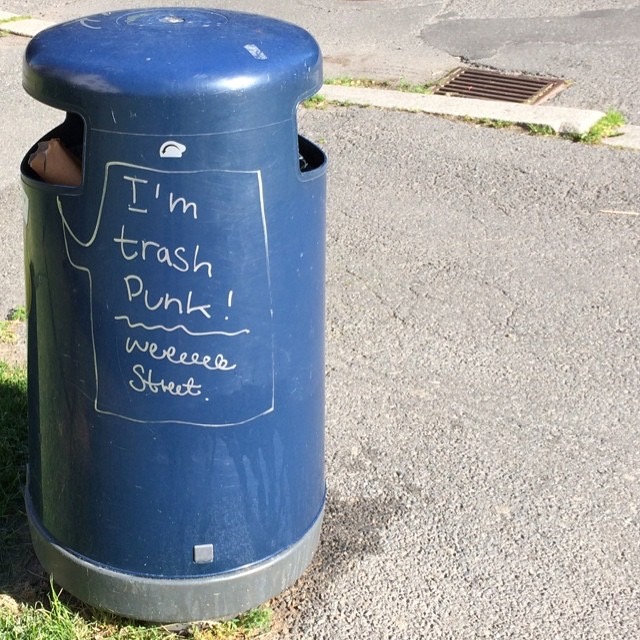 I'm
trash
Punk!
weeeeee
Street.